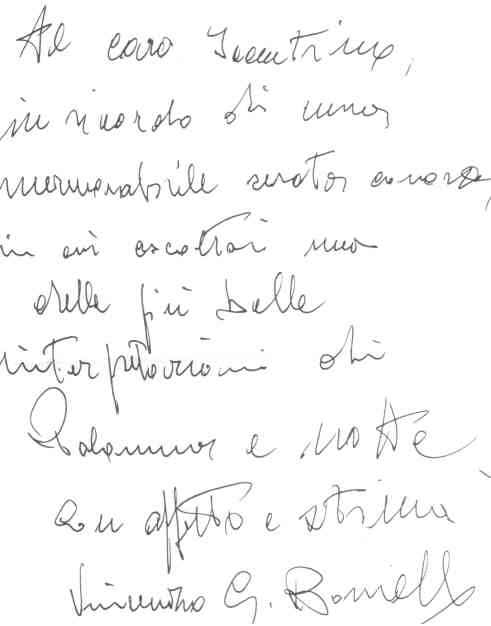 Al caro
in ricordo di una
memorabile serata canora,
in cui ascoltai una
delle più belle
interpretazioni di
Palomma e notte
con affetto e stima
Vincenzo G.